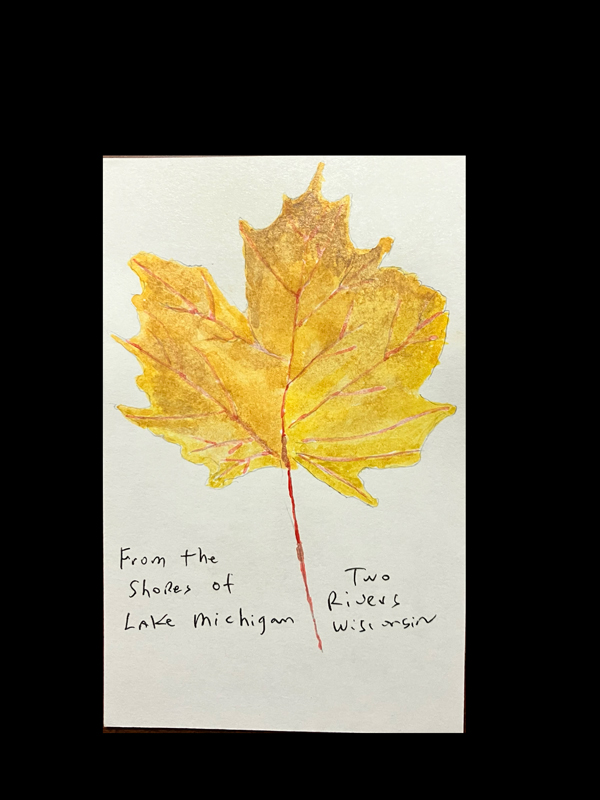 From the
Shores of
Lake Michigan
Two
Rivers
Wisconsin